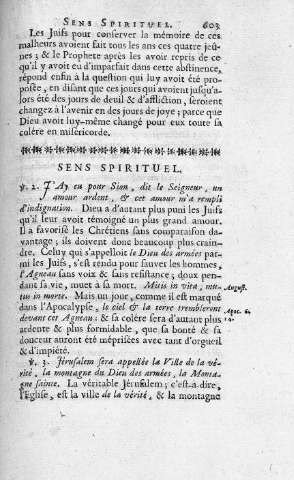 SENS SPIRITUEL. 603
Les Juifs pour conserver la mémoire de ces
malheurs avoient fait tous les ans ces quatre jeu-
nes ; & le Prophete après les avoir repris de ce
qu'il y avoit eu d'imparfait dans cette abstinence,
répond enfin à la question qui luy avoit été propo-
sée, en disant que ces jours qui avoient jusqu'a-
lors été des jours de deuil & d'affliction, seroient
changez à l'avenir en des jours de joye ; parce que
Dieu avoit luy-même changé pour eux toute sa
colére en misericorde.
SENS SPIRITUEL.
℣. 2. J'Ay eu pour Sion, dit le Seigneur, un
amour ardent, & cet amour m'a rempli
d'indignation. Dieu a d'autant plus puni les Juifs
qu'il leur avoit témoigné un plus grand amour.
Il a favorisé les Chrétiens sans comparaison da-
vantage ; ils doivent donc beaucoup plus crain-
dre. Celuy qui s'appelloit le Dieu des armées par-
mi les Juifs, s'est rendu pour sauver les hommes,
l'Agneau sans voix & sans resistance ; doux pen-
dant sa vie, muet à sa mort. Mitis in vita, mu-
tus in morte. Mais un jour, comme il est marqué
dans l'Apocalypse, le ciel & la terre trembleront
devant cet Agneau ; & sa colére sera d'autant plus
ardente & plus formidable, que sa bonté & sa
douceur auront été méprisées avec tant d'orgueil
& d'impieté.
℣. 3. Jérusalem sera appellée la Ville de la vé-
rité, la montagne du Dieu des armées, la Monta-
gne sainte. La véritable Jérusalem ; c'est-à-dire,
l'Eglise, est la ville de la vérité, & la montagne
August.
Apoc. 6.